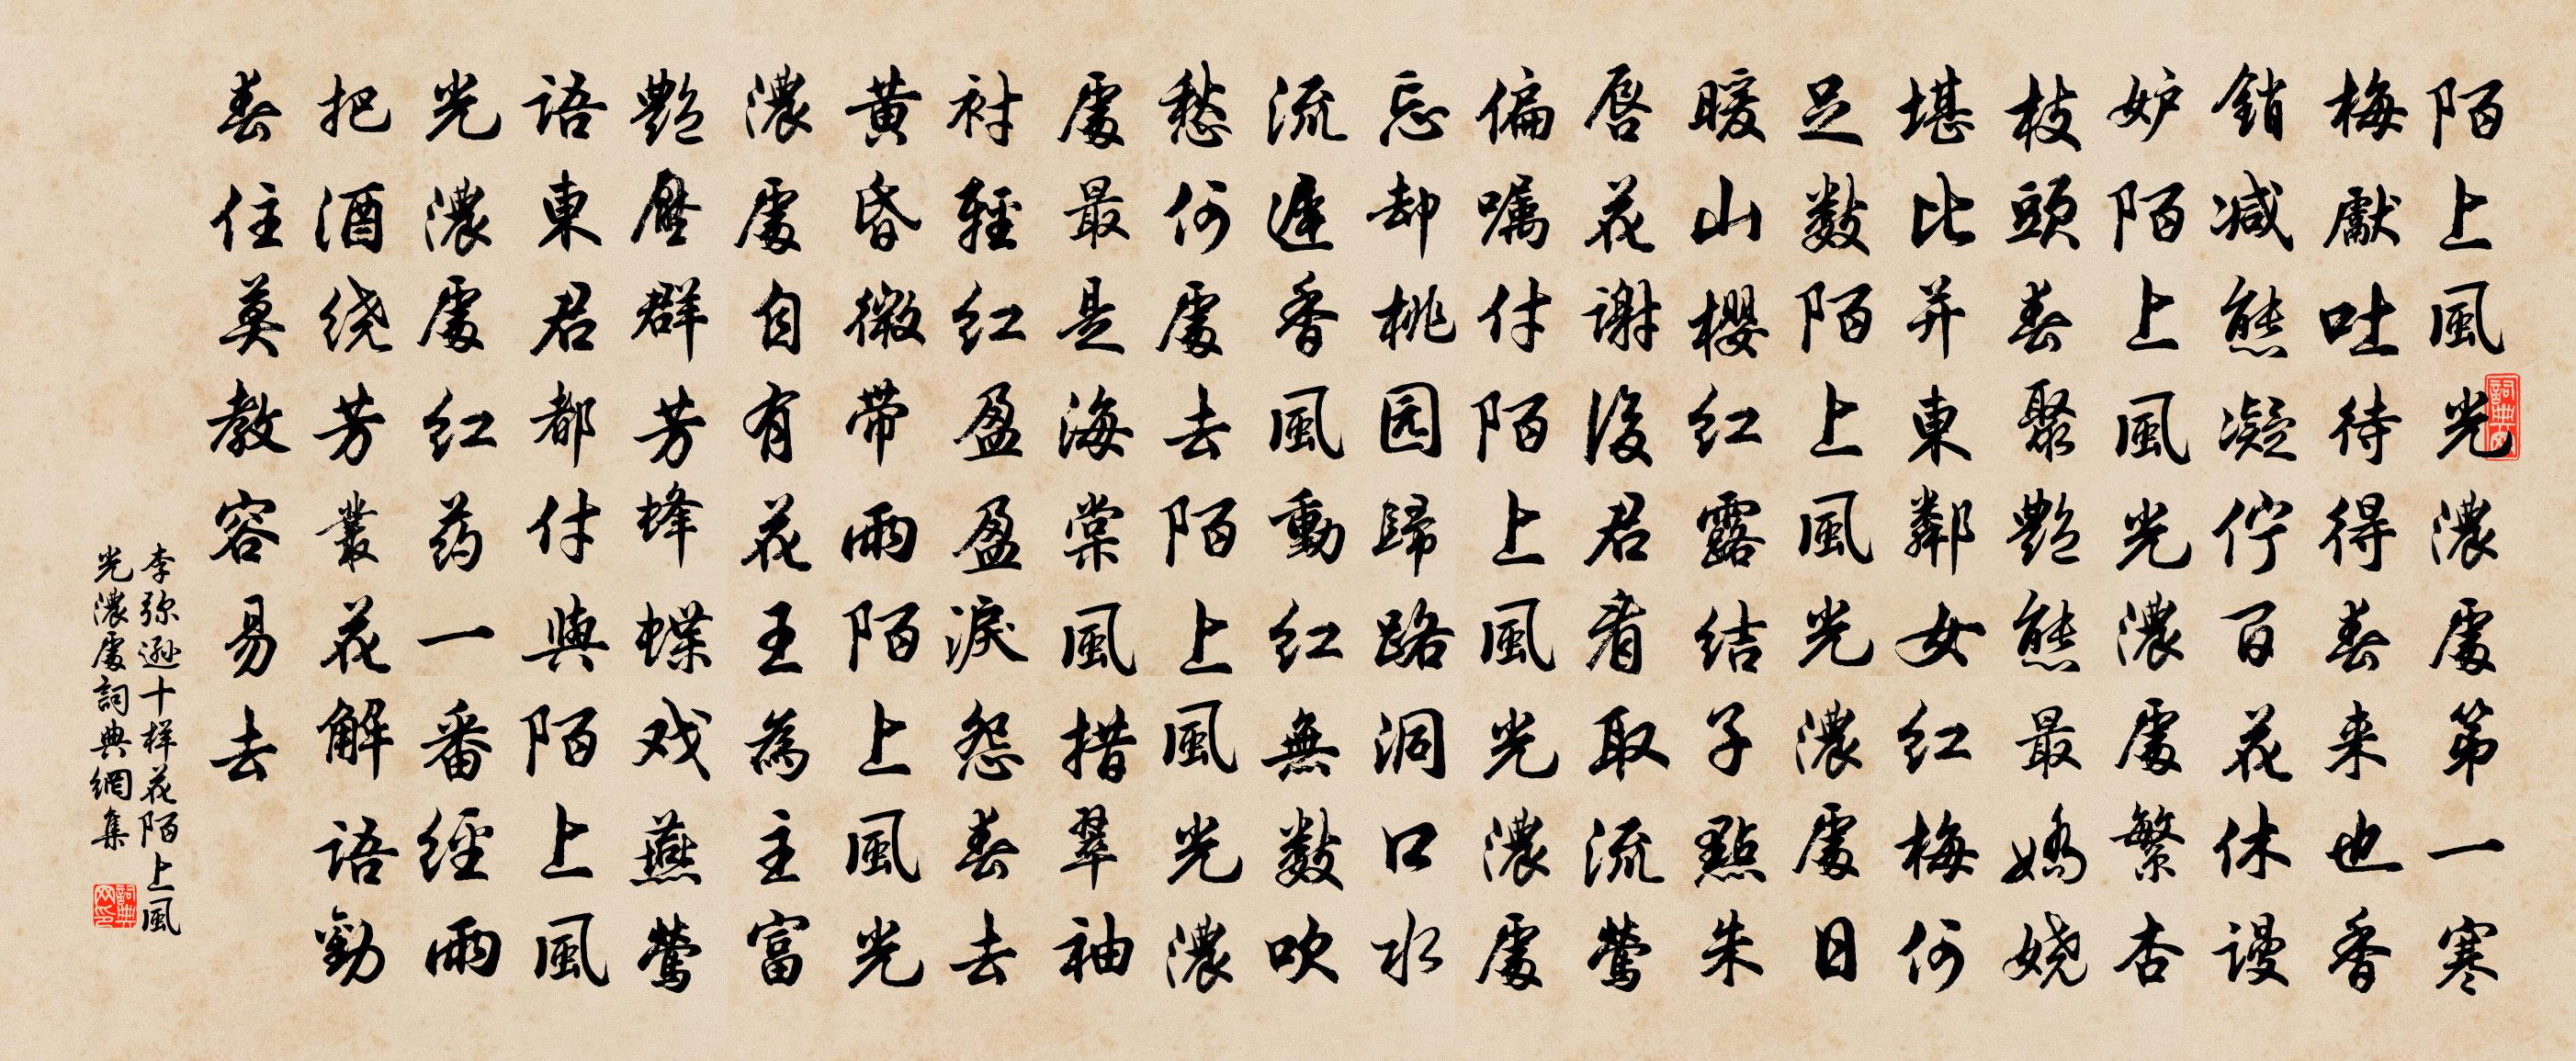 陌上風光濃處第一寒
梅獻吐待得春来也香
銷减態凝佇百花休謾
妒陌上風光濃處繁杏
枝頭春聚艷態最嬌娆
堪比并東鄰女红梅何
足數陌上風光濃處日
暖山櫻红露结子點朱
唇花谢後君看取流莺
偏嘱付陌上風光濃處
忘却桃园歸路洞口水
流遲香風動红無數吹
愁何處去陌上風光濃
處最是海棠風措翠袖
衬輕红盈盈淚怨春去
黄昏微带雨陌上風光
濃處自有花王為主富
艷壓群芳蜂蝶戏燕莺
語東君都付與陌上風
光濃處红药一番經雨
把酒绕芳叢花解語勸
春住莫教容易去
李弥遜十样花陌上風
光濃處詞典網集
詞典网
詞典网印